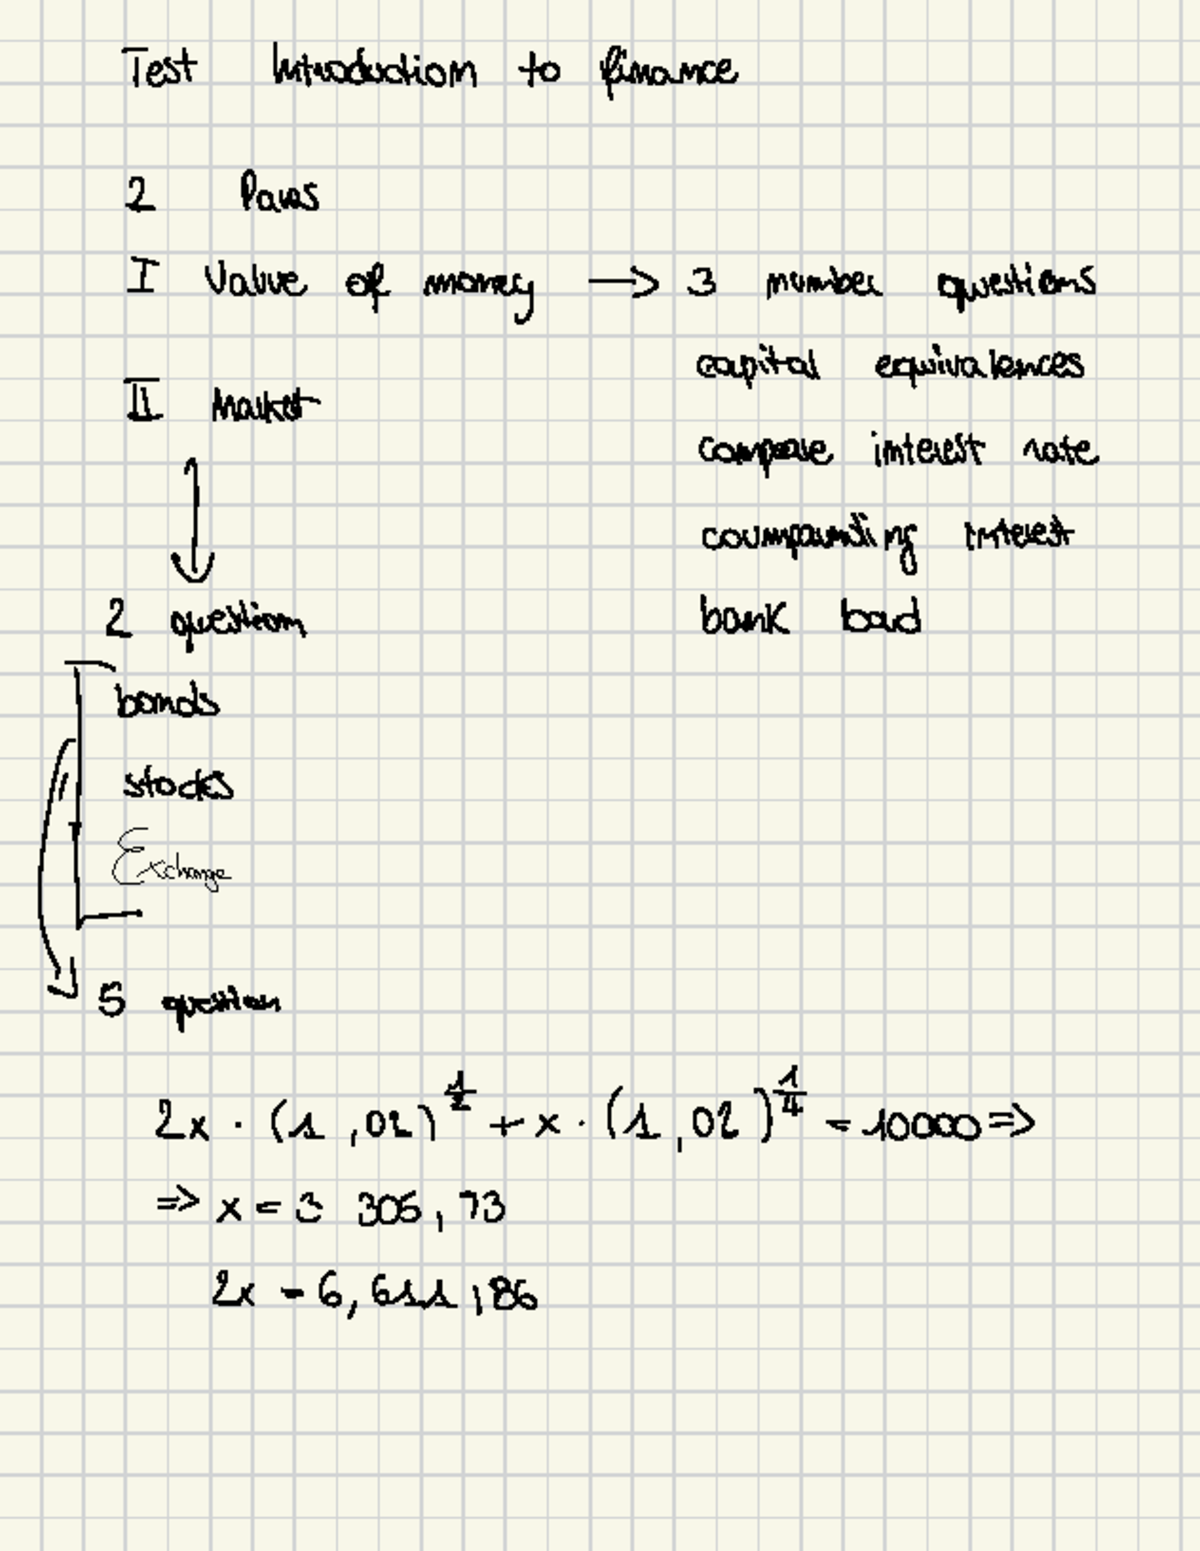 Test Introduction to finance
2 Pars
I Value of money → 3 number questions
capital equivalences
II Market
compare interest rate
coumpaunting interest
2 question
bank bad
bonds
stocks
Exchange
5 question
2x · (1,02)^1/2 + x · (1,02)^1/4 = 10000 =>
=> x = 3 305,73
2x = 6,611,86